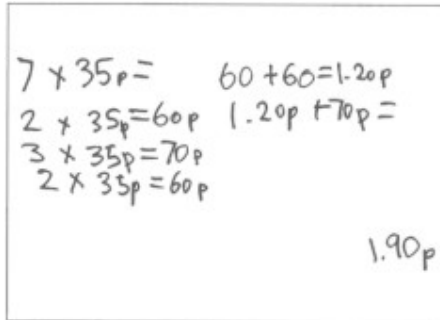 7 x 35p =
2 x 35p = 60p
3 x 35p = 70p
2 x 35p = 60p
60 + 60 = 1.20p
1.20p + 70p =
1.90p